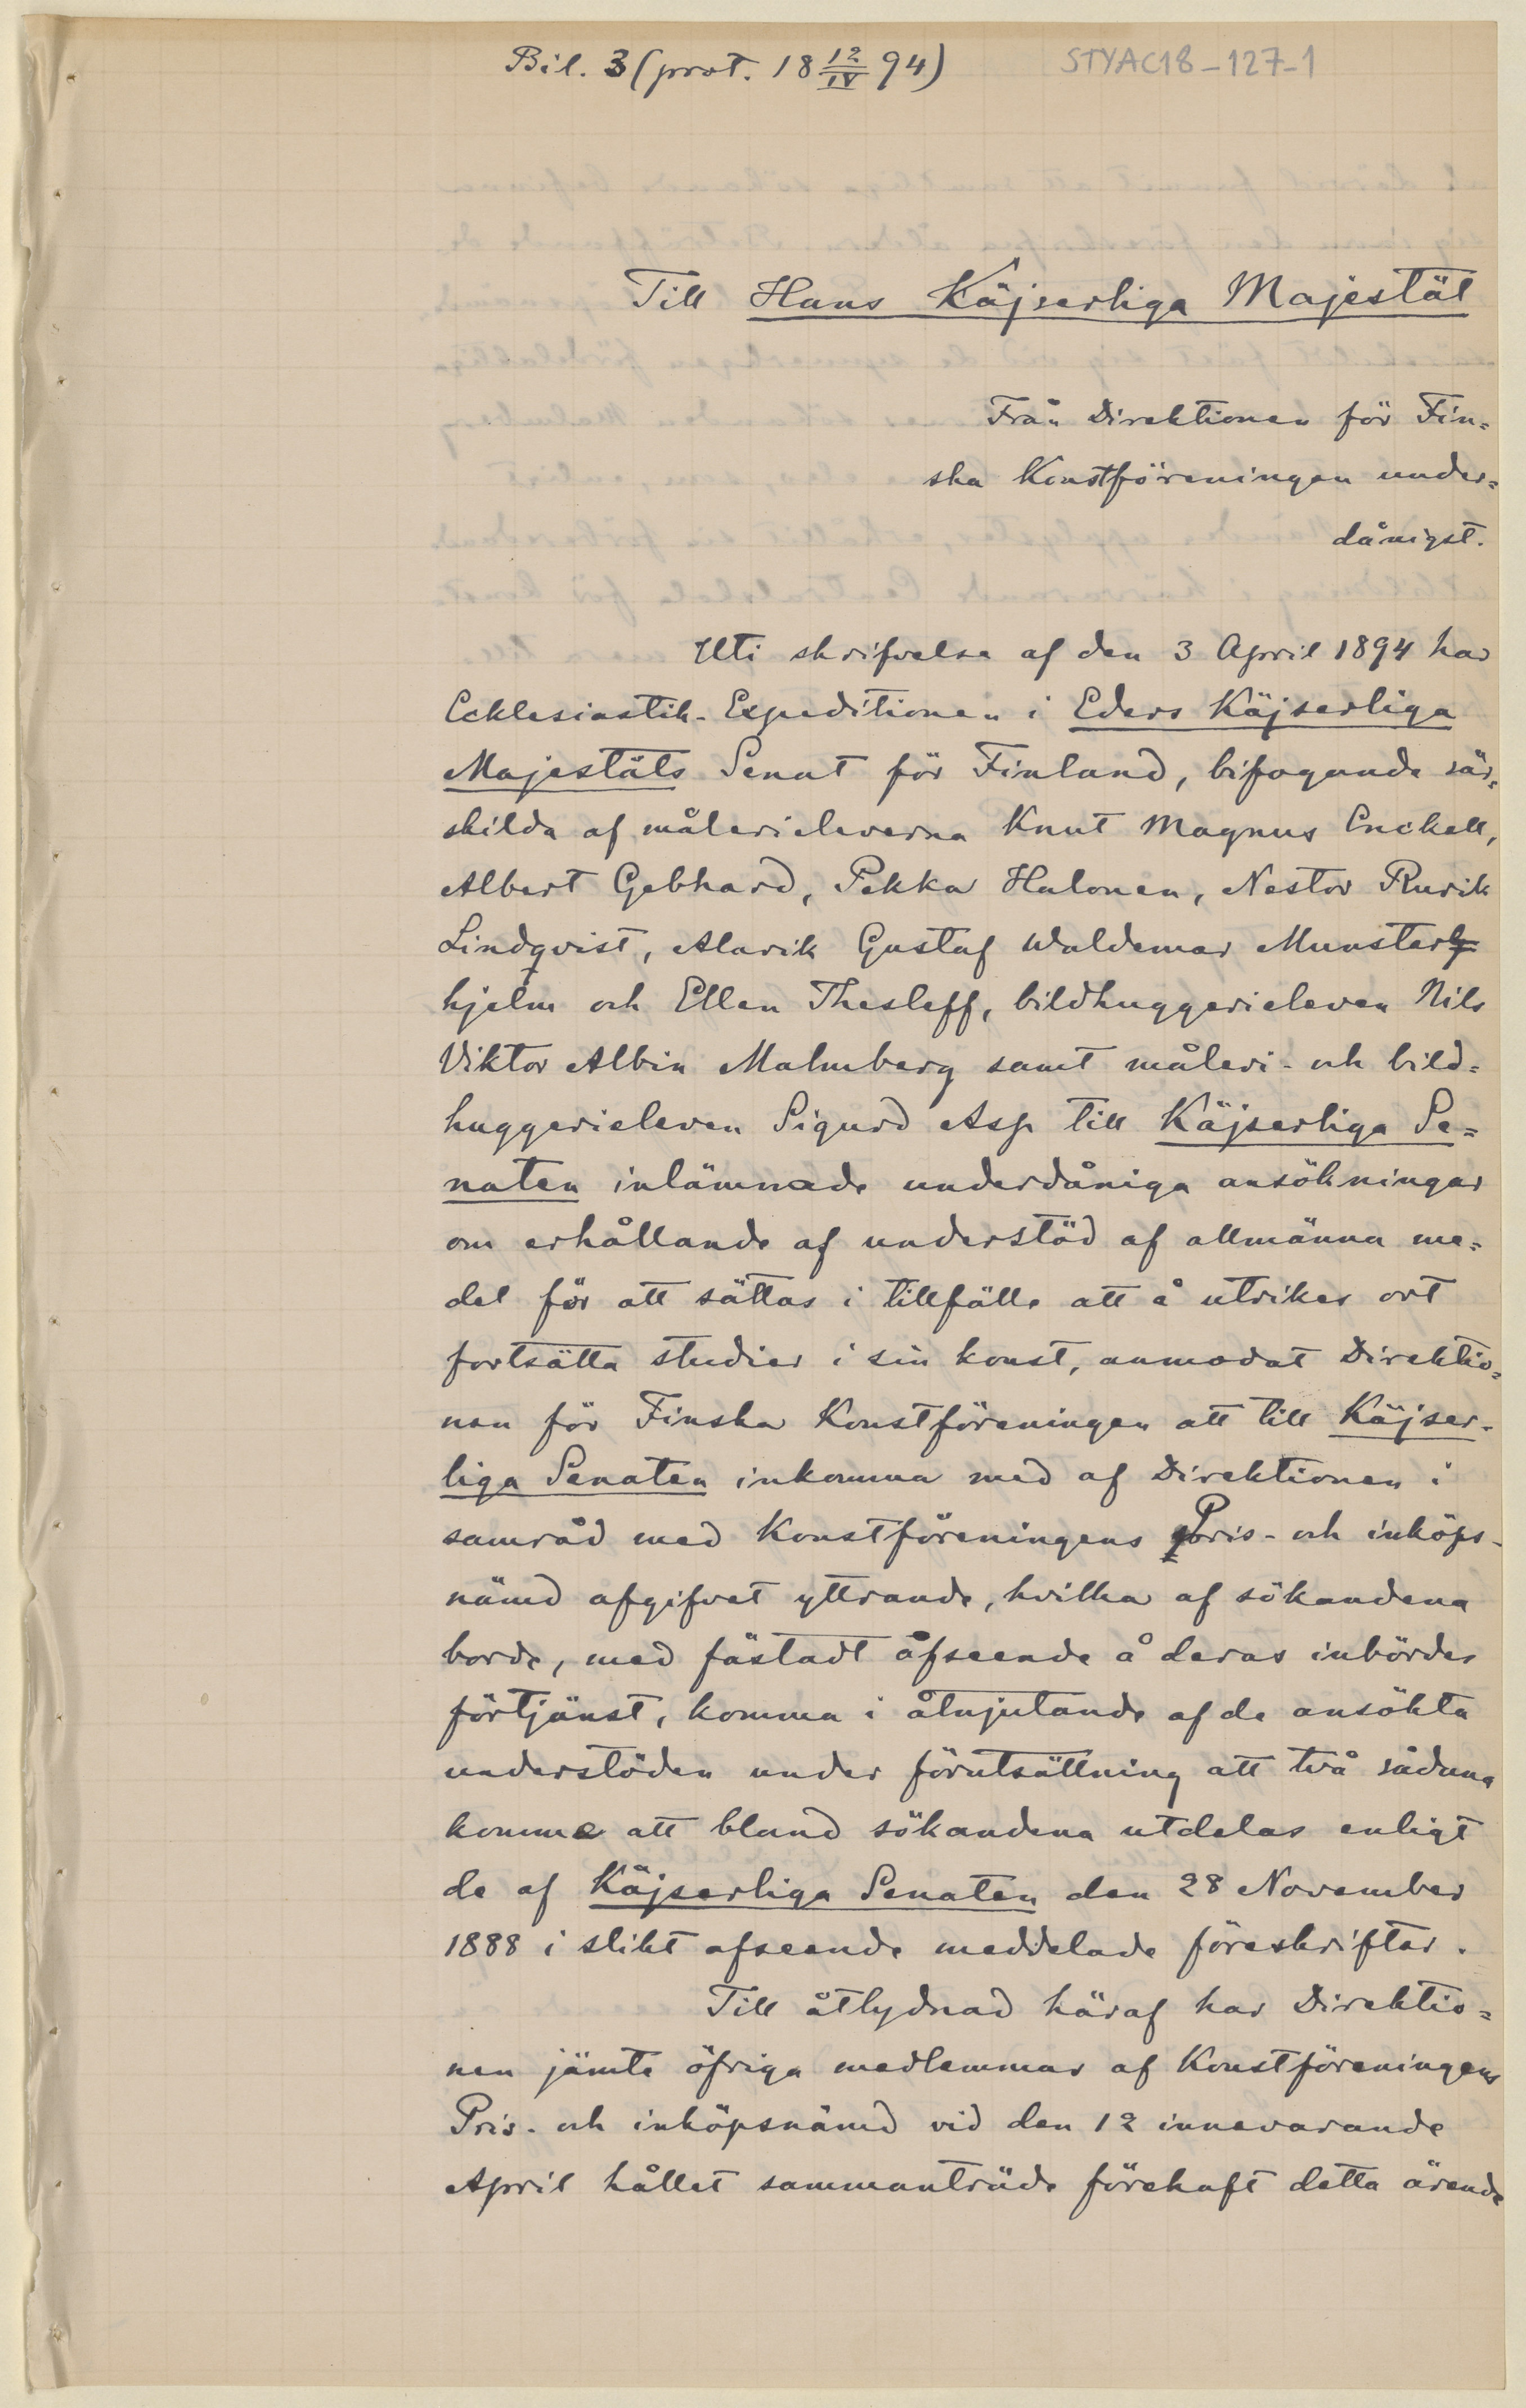 Bil. 3 (prot. 18 12/IV 94)
STYAC18-127-1
Till Hans Käjserliga Majestät
Från Direktionen för Fin=
ska Konstföreningen under=
dånigst.
Uti skrifvelse af den 3 April 1894 har
Ecklesiastik-Expeditionen i Eders Käjserliga
Majestäts Senat för Finland, bifogande sär=
skilda af målerieleverna Knut Magnus Enckell,
Albert Gebhard, Pekka Halonen, Nestor Rurik
Lindqvist, Alarik Gustaf Waldemar Munster=
hjelm och Ellen Thesleff, bildhuggerieleven Nils
Viktor Albin Malmberg samt måleri- och bild=
huggerieleven Sigurd Asp till Käjserliga Se=
naten inlämnade underdåniga ansökningar
om erhållande af understöd af allmänna me=
del för att sättas i tillfälle att å utrikes ort
fortsätta studier i sin konst, anmodat Direktio=
nen för Finska Konstföreningen att till Käjser-
liga Senaten inkomma med af Direktionen i
samråd med Konstföreningens Pris- och inköps-
nämd afgifvet yttrande, hvilka af sökandena
borde, med fästadt afseende å deras inbördes
förtjänst, komma i åtnjutande af de ansökta
understöden under förutsättning att två sådana
komme att bland sökandena utdelas enligt
de af Käjserliga Senaten den 28 November
1888 i slikt afseende meddelade föreskrifter.
Till åtlydnad häraf har Direktio=
nen jämte öfriga medlemmar af Konstföreningens
Pris- och inköpsnämd vid den 12 innevarande
April hållet sammanträde förehaft detta ärende